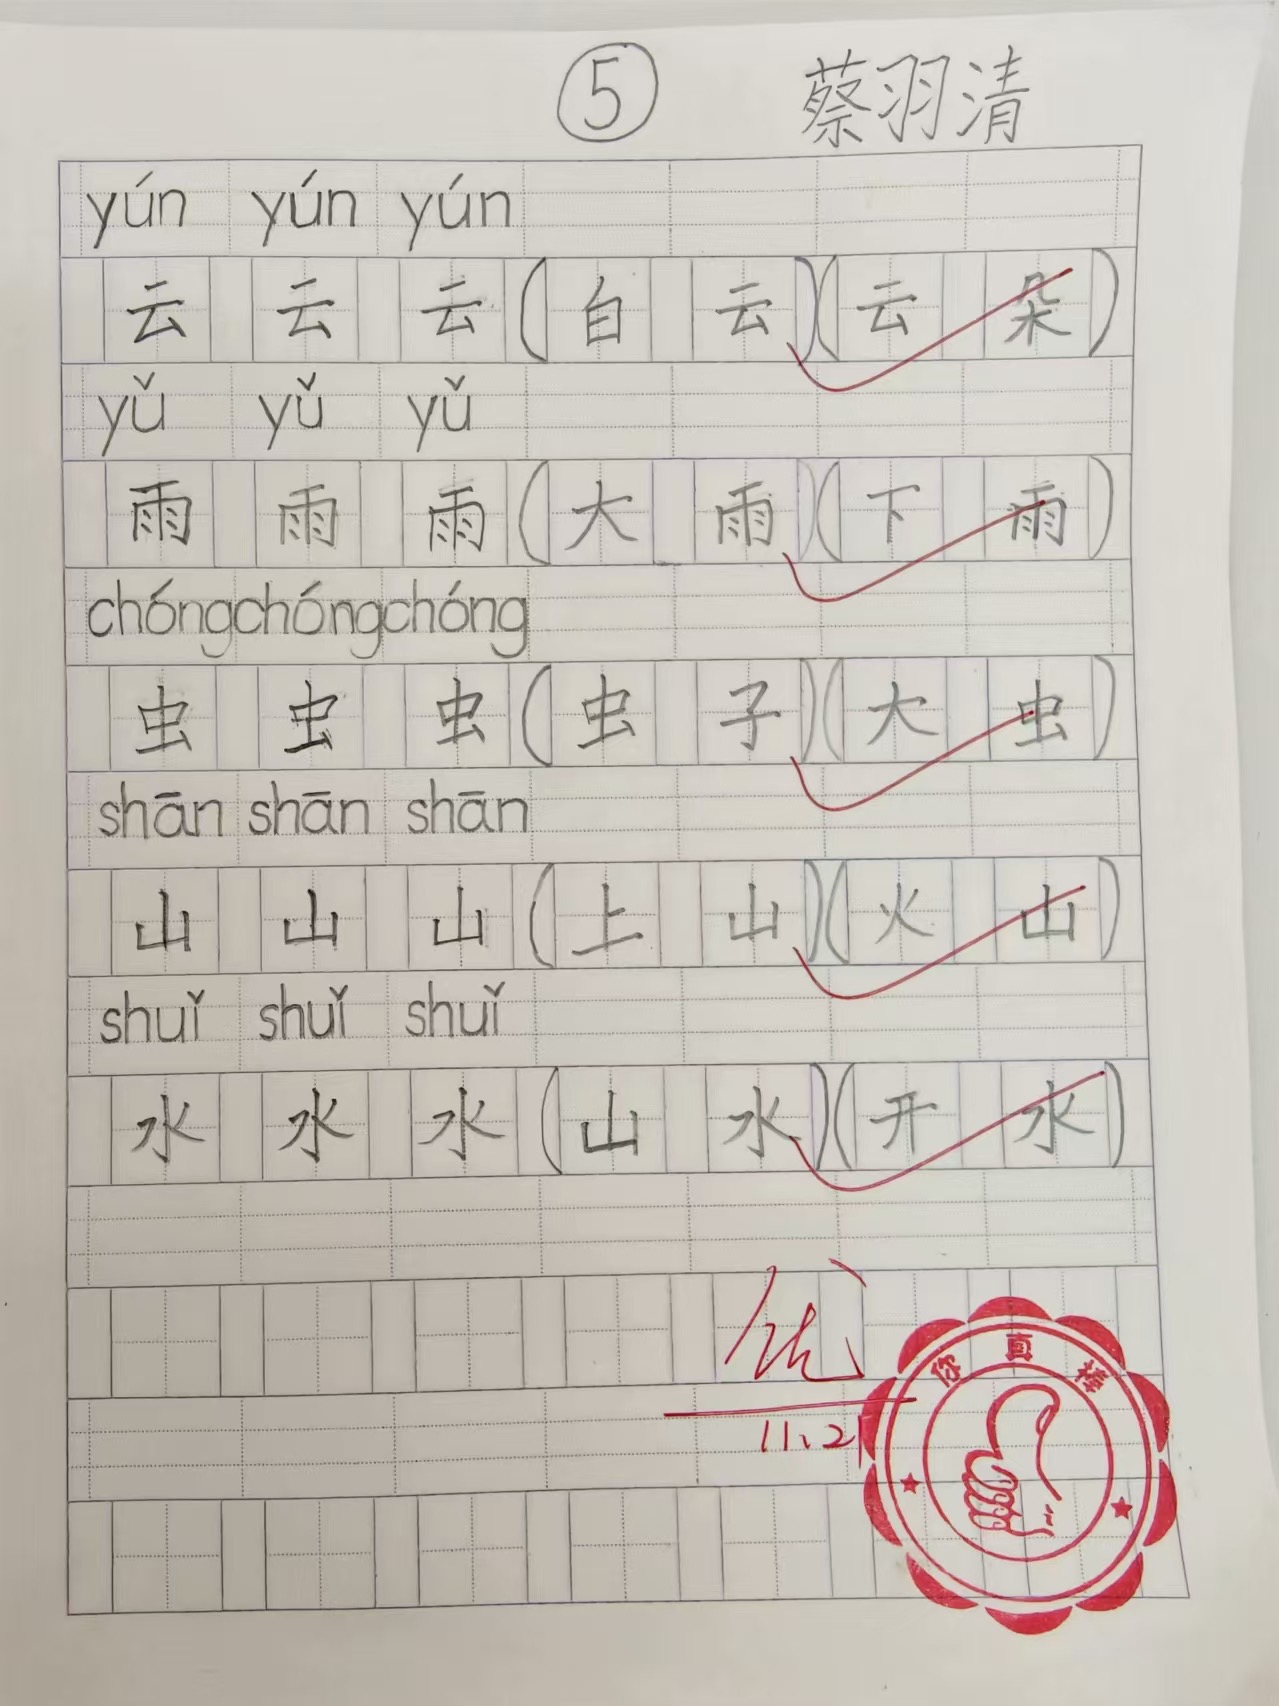 5 蔡羽清
yún yún yún
云 云 云 (白 云)(云 朵)
yǔ yǔ yǔ
雨 雨 雨 (大 雨)(下 雨)
chóng chóng chóng
虫 虫 虫 (虫 子)(大 虫)
shān shān shān
山 山 山 (上 山)(火 山)
shuǐ shuǐ shuǐ
水 水 水 (山 水)(开 水)
优
11、21
你真棒